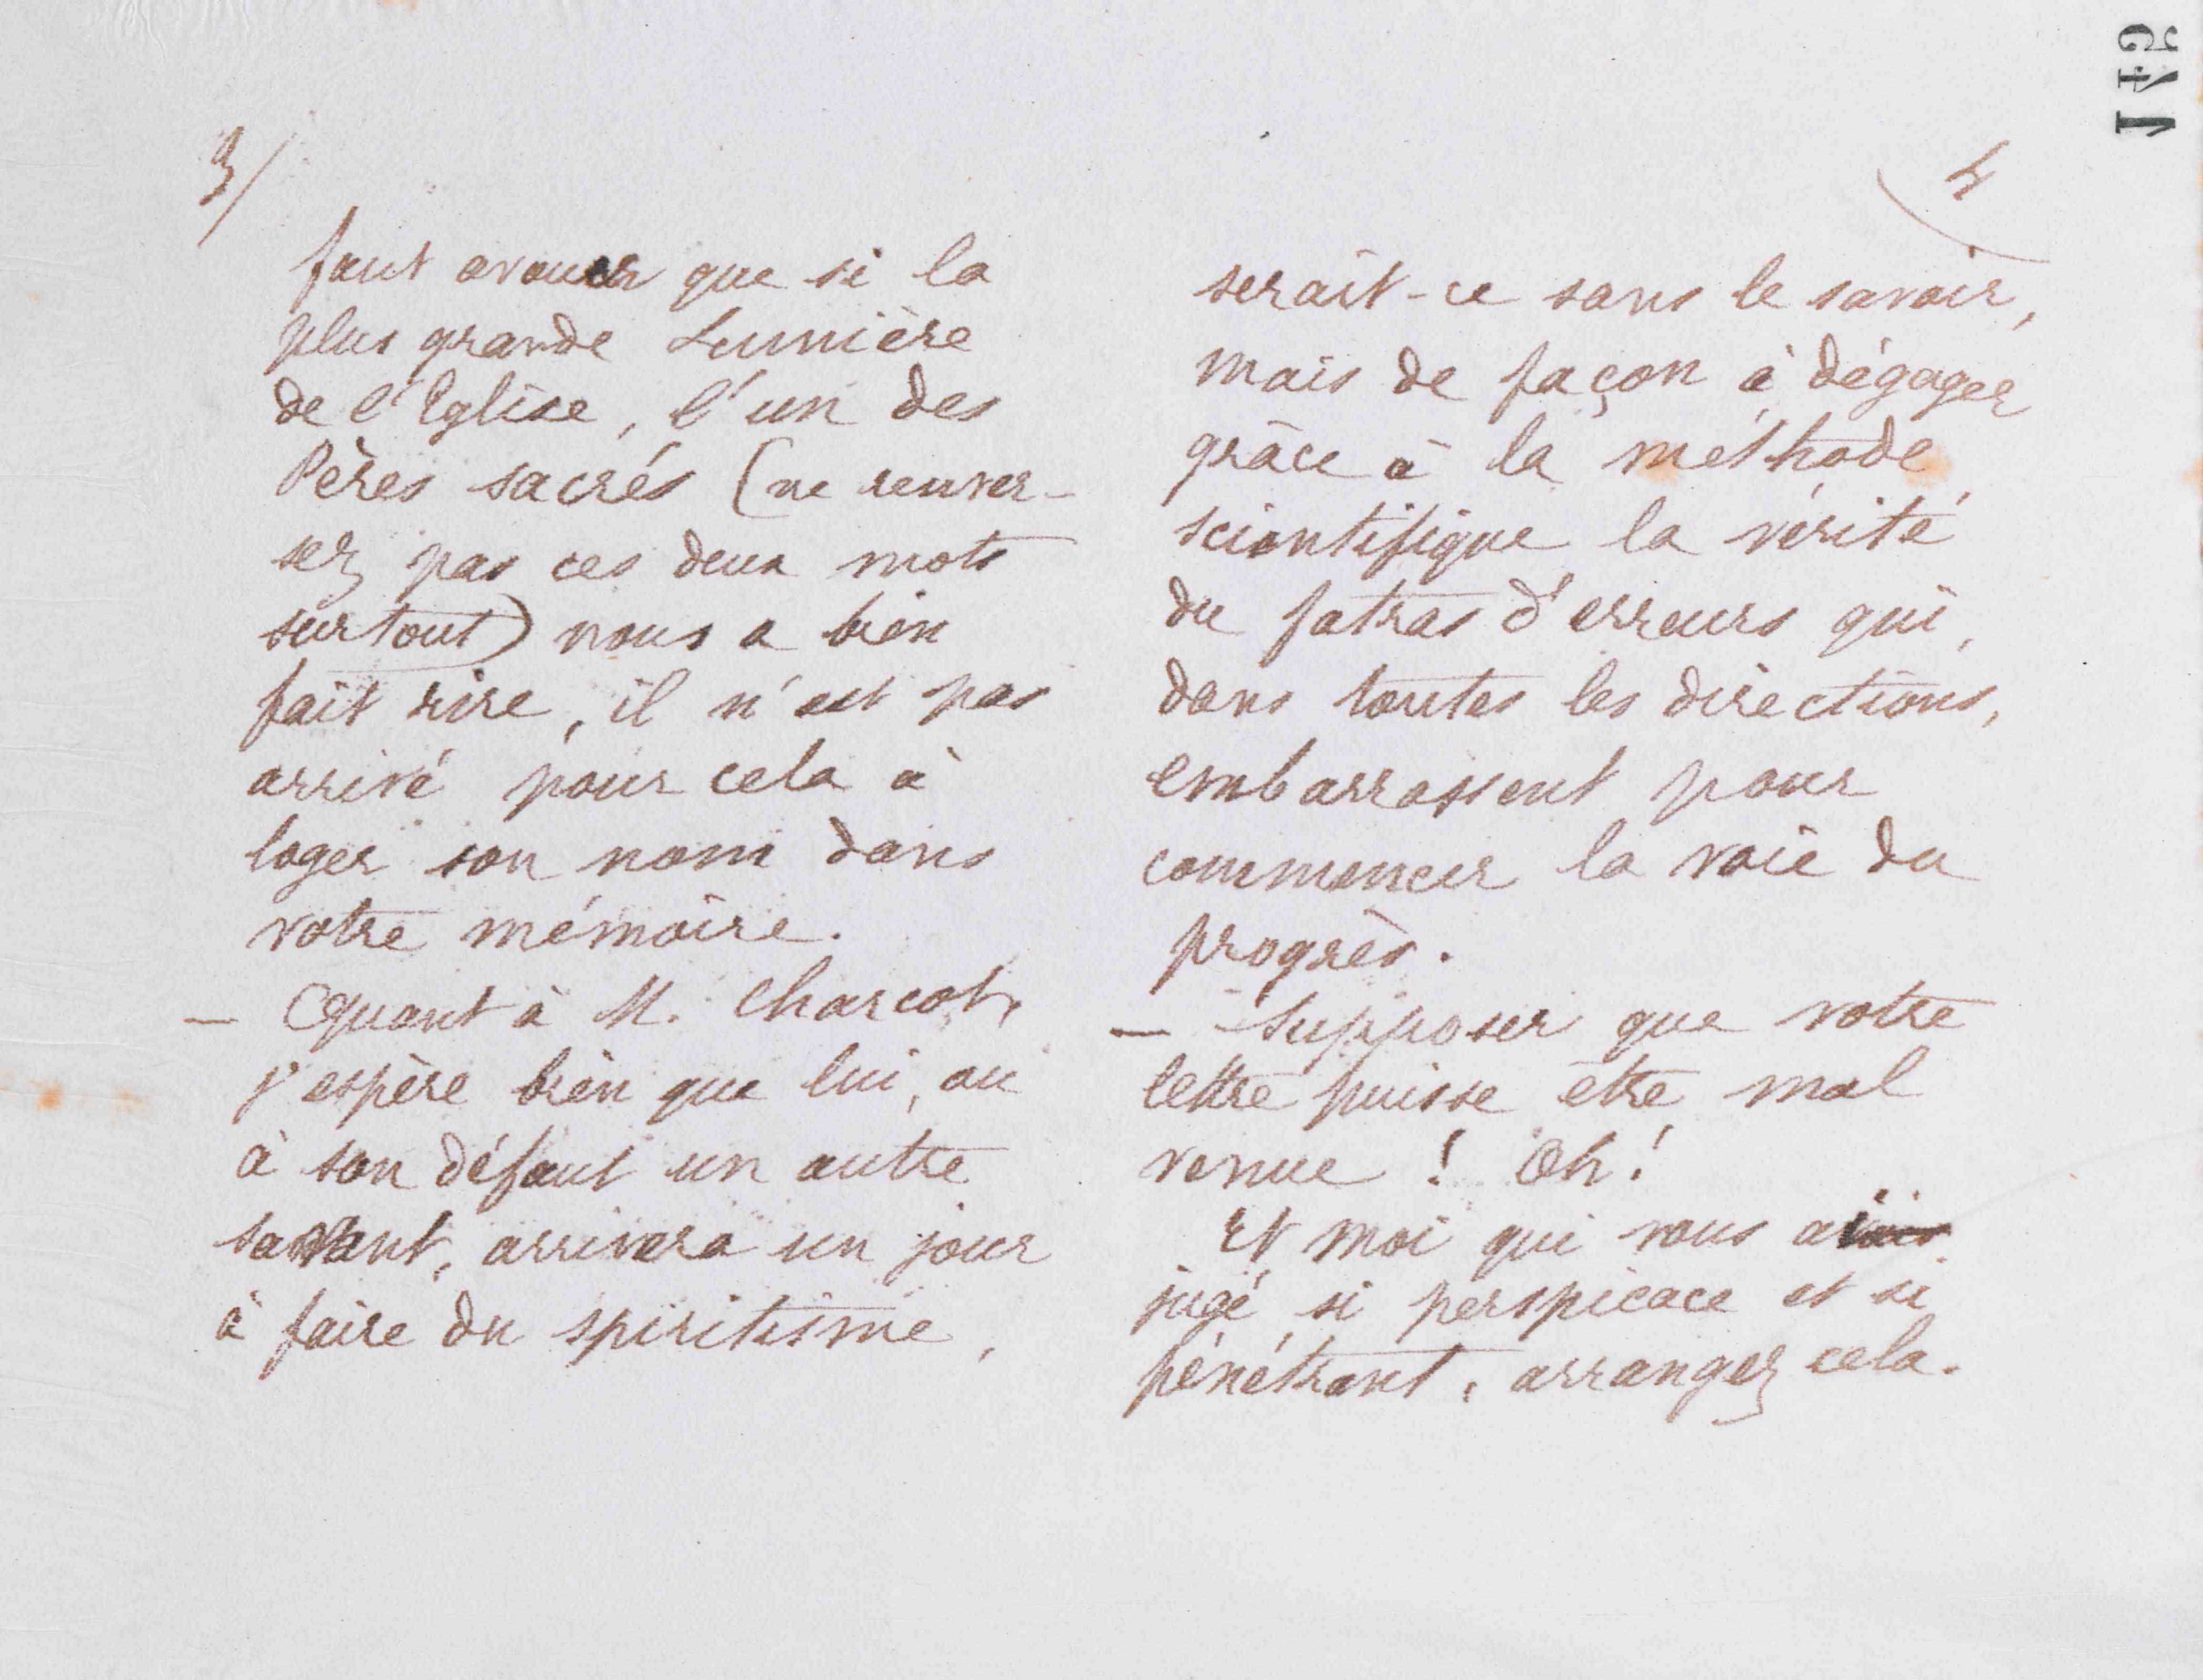 3/
faut avouer que si la
plus grande Lumière
de l'Eglise, l'un des
Pères sacrés (ne renver-
sez pas ces deux mots
surtout) nous a bien
fait rire, il n'est pas
arrivé pour cela à
loger son nom dans
votre mémoire.
— Quant à M. Charcot,
j'espère bien que lui, ou
à son défaut un autre
savant, arrivera un jour
à faire du spiritisme,
4
serait-ce sans le savoir,
mais de façon à dégager
grâce à la méthode
scientifique la vérité
du fatras d'erreurs qui,
dans toutes les directions,
embarrassent pour
commencer la voie du
progrès.
— Supposer que votre
lettre puisse être mal
venue ! Oh !
Et moi qui vous avais
jugé si perspicace et si
pénétrant, arrangez cela.
142